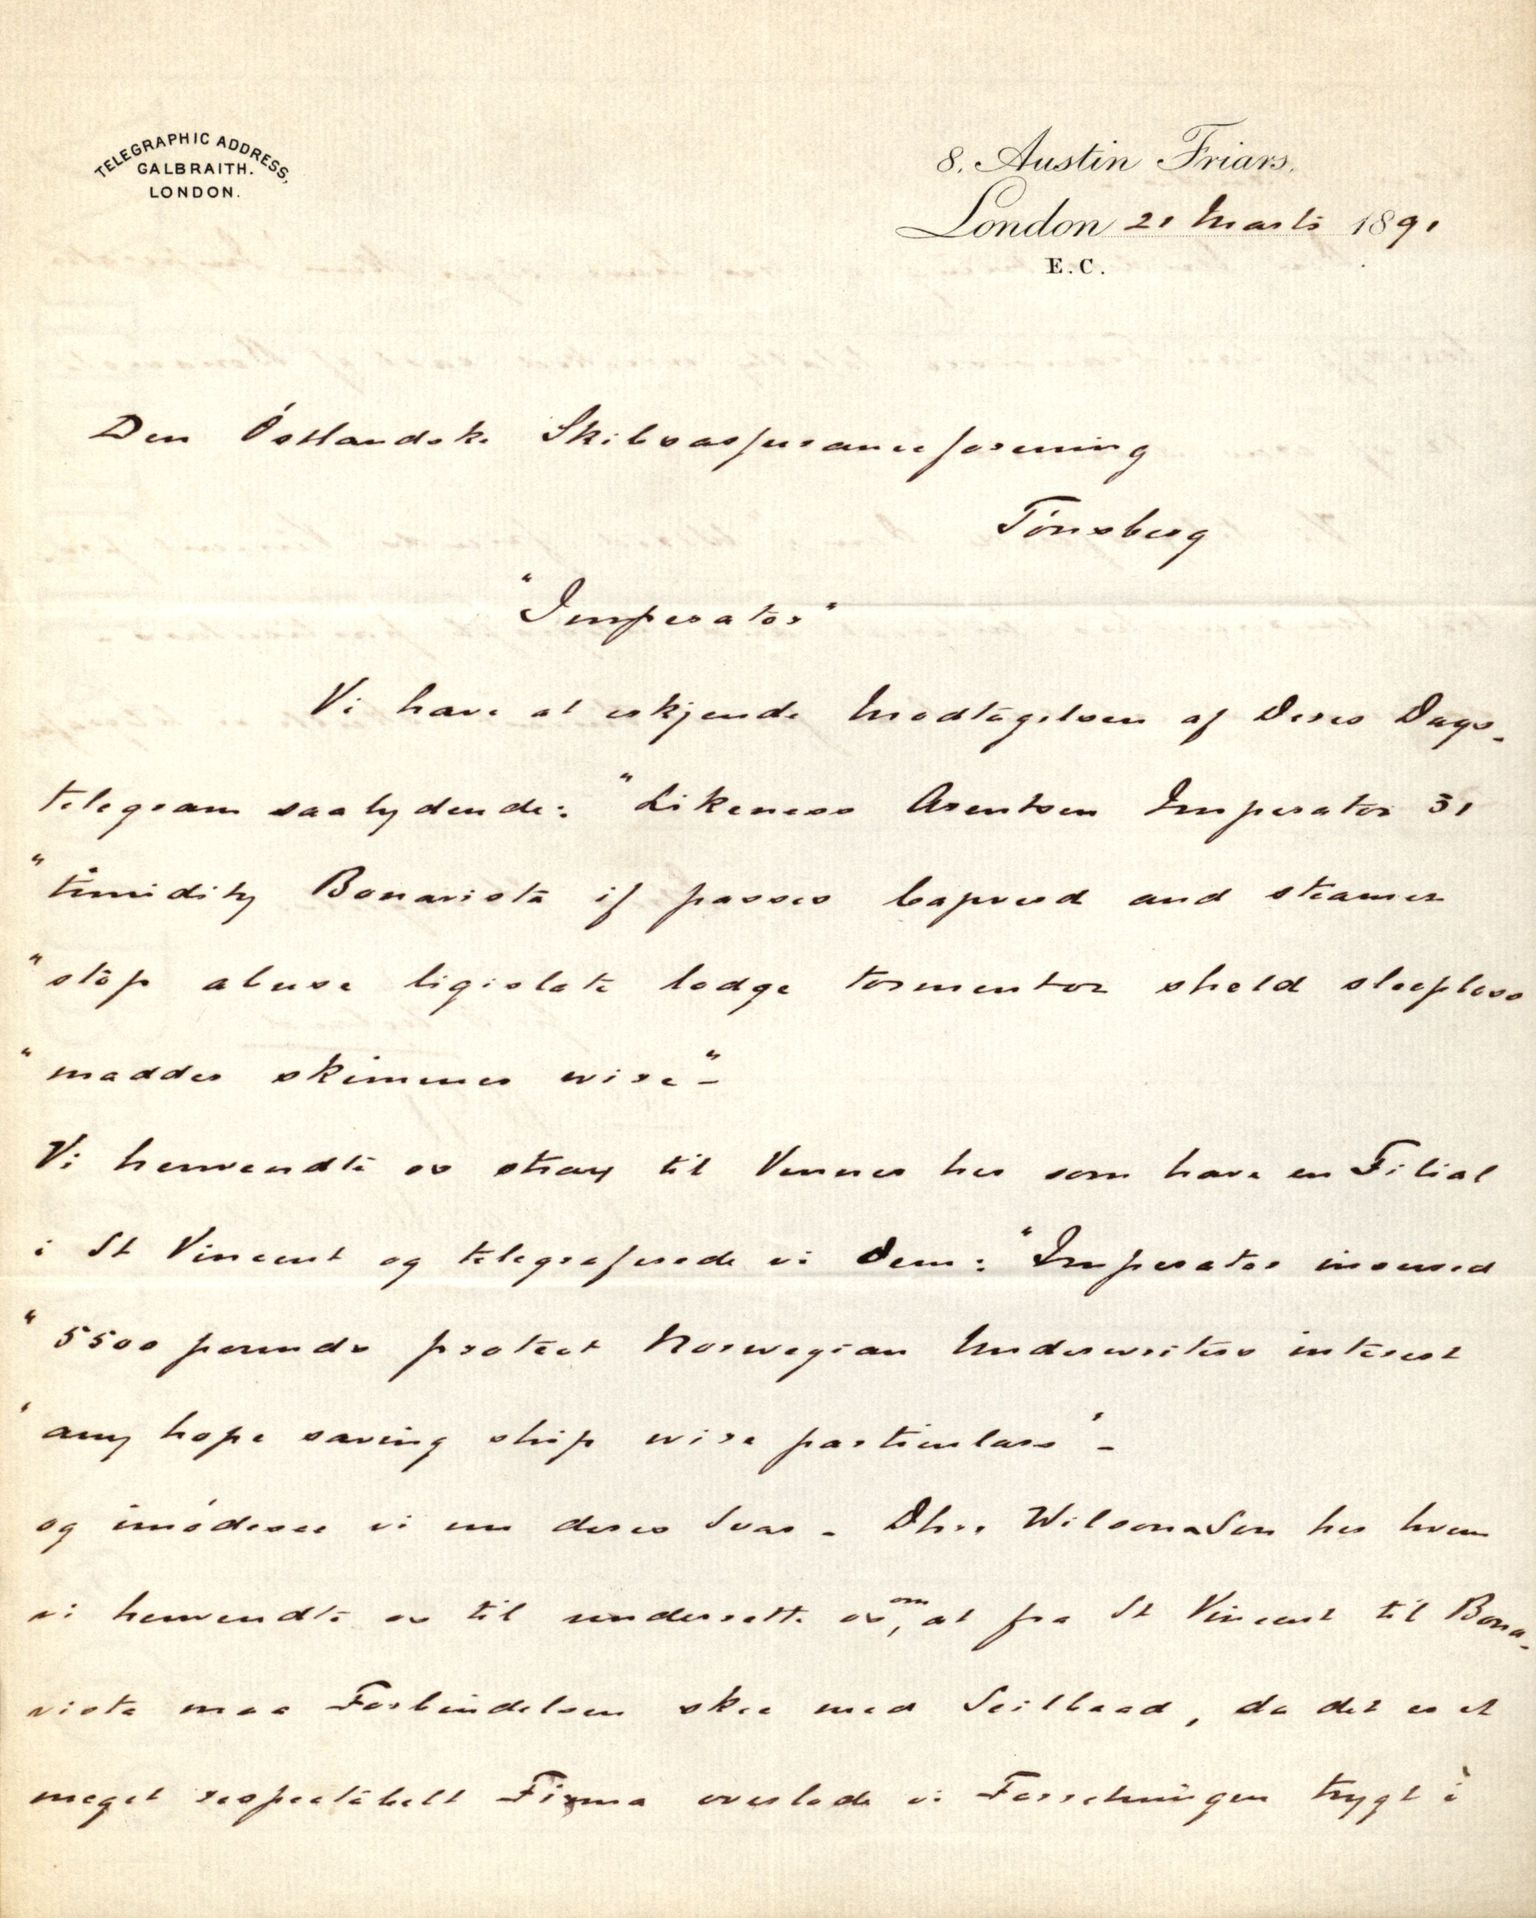 TELEGRAPHIC ADDRESS,
GALBRAITH.
LONDON.
8, Austin Friars,
London 21 Marts 1891
E.C.
Den Östlandske Skibsassuranceforening
Tönsberg
"Imperator"
Vi have at erkjende Modtagelsen af Deres Dags-
telegram saalydende: "Likeness Arentsen Imperator 31
"timidity Bonavista if passes Capverd and steamer
"stop abuse ligislate lodge tormentor sheld sleepless
"madder skimmer wire"-
Vi henvendte os strax til Venner her som have en Filial
i St Vincent og telegraferede vi Dem: "Imperator insured
"5500 pounds protect Norwegian Underwriters interest
"any hope saving ship wire particulars"-
og imödesee vi nu deres Svar - Dhrr Wilson & Son her hvem
vi henvendte os til underrette os, om at fra St Vincent til Bona-
vista maa Forbindelsen skee med Seilbaad, da det er et
meget respectabelt Firma overlade vi Forretningen trygt i